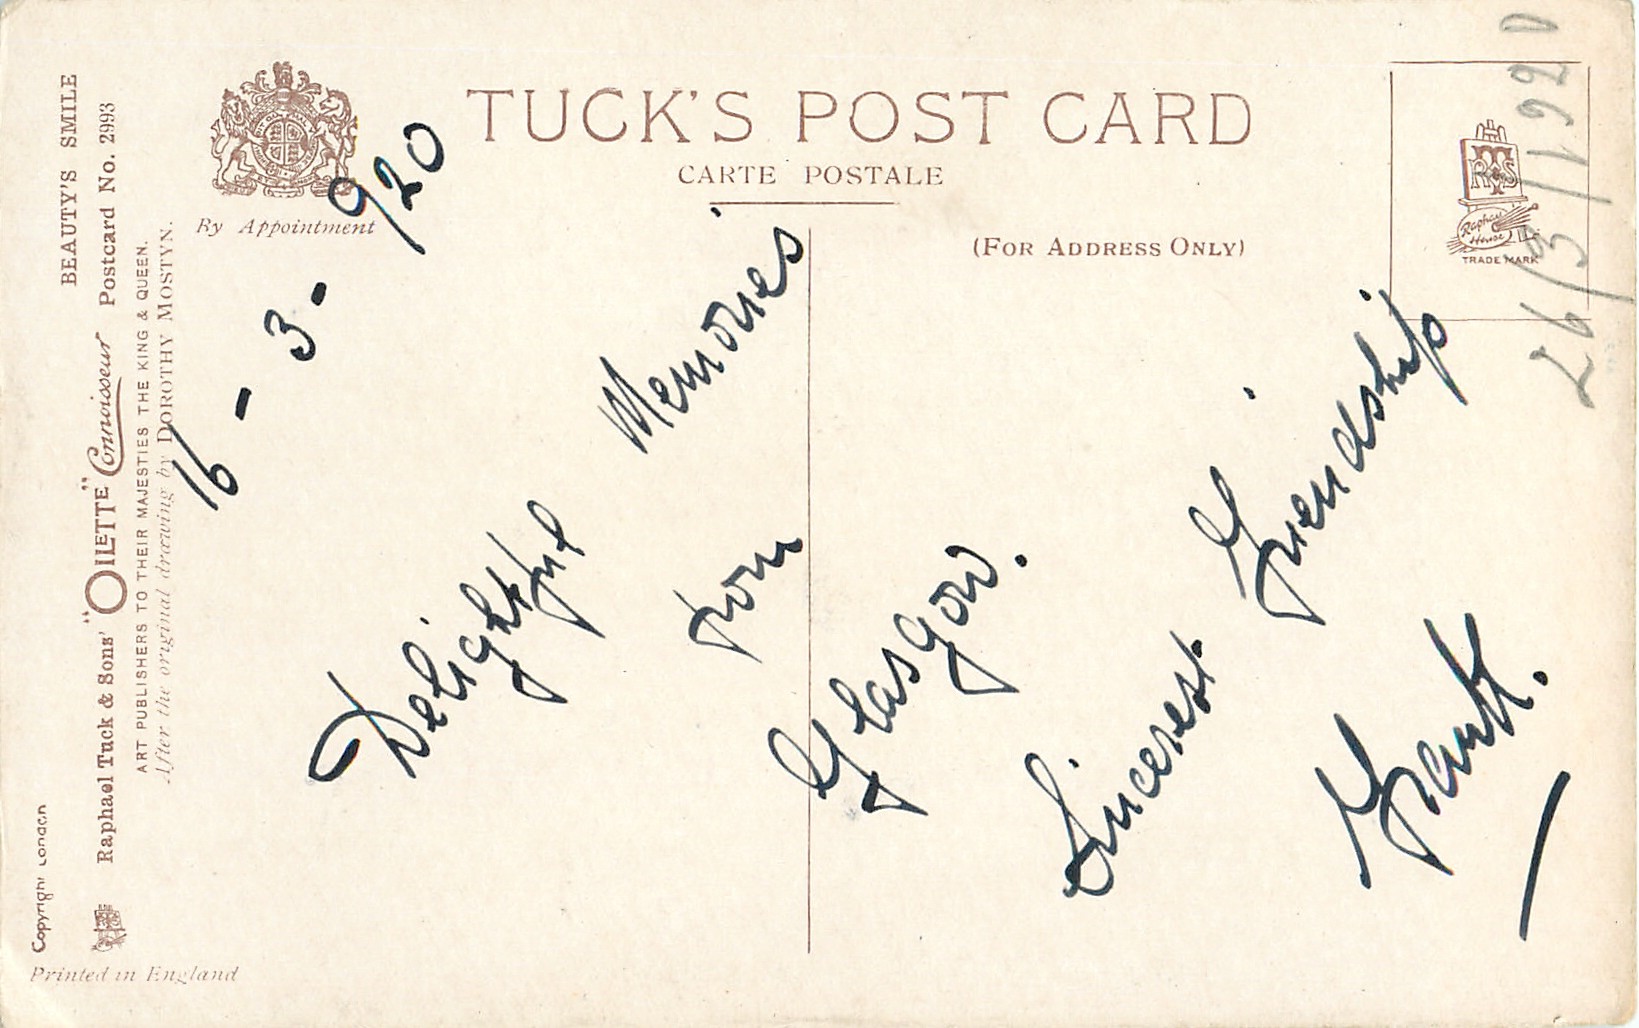 TUCK'S POST CARD
CARTE POSTALE
(FOR ADDRESS ONLY)
By Appointment
TRADE MARK
Raphael House
BEAUTY'S SMILE
Raphael Tuck & Sons' "OILETTE" Connoisseur Postcard No. 2993
ART PUBLISHERS TO THEIR MAJESTIES THE KING & QUEEN.
After the original drawing by DOROTHY MOSTYN.
Copyright London
Printed in England
16 - 3 - 920
Delightful Memories
from
Glasgow.
Sincerest Friendship
Frank.